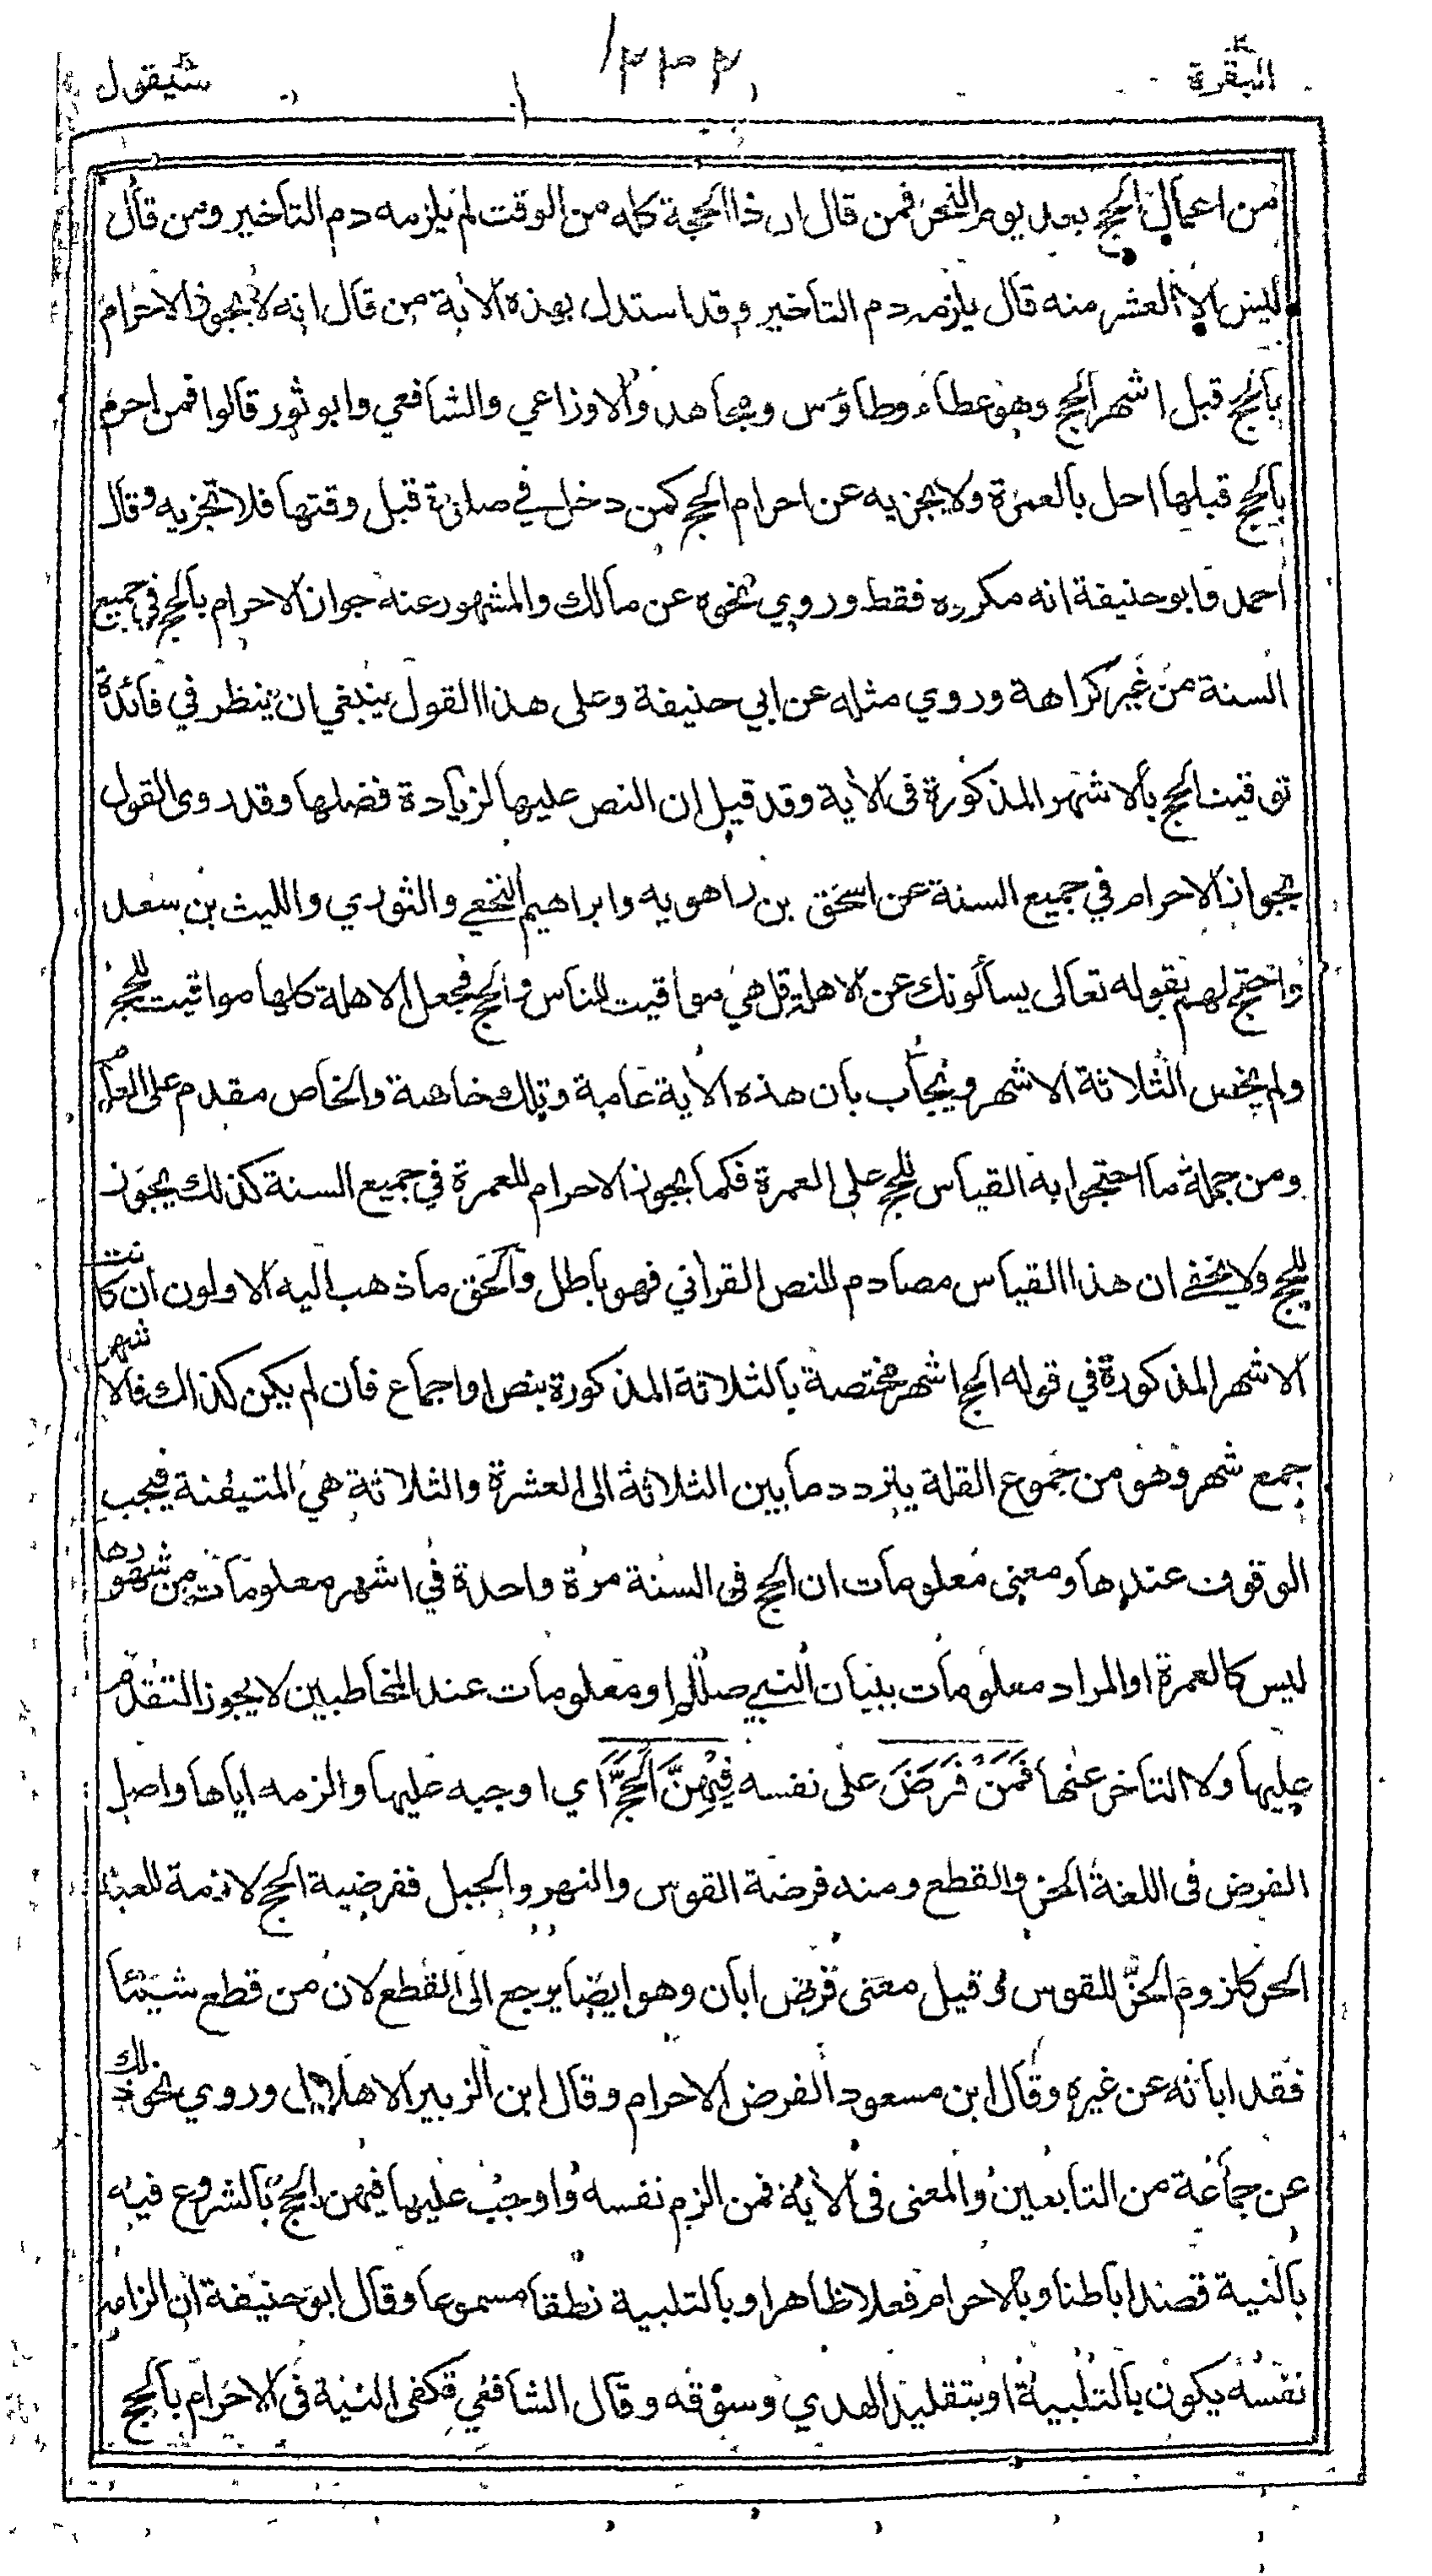 البقرة
سيقول
من اعمال الحج بعد يوم النحر فمن قال ان ذا الحجة كله من الوقت لم يلزمه دم التأخير ومن قال
ليس الا العشر منه قال يلزمه دم التاخير وقد استدل بهذه الأية من قال انه لا يجوز الاحرام
بالحج قبل اشهر الحج وهو عطاء وطاؤس ومجاهد والاوزاعي والشافعي وابو ثور قالوا فمن احرم
بالحج قبلها احل بالعمرة ولا يجزيه عن احرام الحج كمن دخل في صلوة قبل وقتها فلا تجزيه وقال
احمد وابو حنيفة انه مكروه فقط وروي نحوه عن مالك والمشهور عنه جواز الاحرام بالحج في جميع
السنة من غير كراهة وروي مثله عن ابي حنيفة وعلى هذا القول ينبغي ان ينظر في فائدة
توقيت الحج بالاشهر المذكورة في الأية وقد قيل ان النص عليها لزيادة فضلها وقد روى القول
بجواز الاحرام في جميع السنة عن اسحق بن راهويه وابراهيم النخعي والثوري والليث بن سعد
واحتج لهم بقوله تعالى يسألونك عن الاهلة قل هي مواقيت للناس والحج فجعل الاهلة كلها مواقيت للحج
ولم يخص الثلاثة الاشهر ويجاب بان هذه الأية عامة وتلك خاصة والخاص مقدم على العام
ومن جملة ما احتجوا به القياس للحج على العمرة فكما يجوز الاحرام للعمرة في جميع السنة كذلك يجوز
للحج ولا يخفى ان هذا القياس مصادم للنص القراني فهو باطل والحق ما ذهب اليه الاولون ان كانت
الاشهر المذكورة في قوله الحج اشهر مختصة بالثلاثة المذكورة بنص او اجماع فان لم يكن كذلك فالاشهر
جمع شهر وهو من جموع القلة يتردد ما بين الثلاثة الى العشرة والثلاثة هي المتيقنة فيجب
الوقوف عندها ومعنى معلومات ان الحج في السنة مرة واحدة في اشهر معلومات من شهورها
ليس كالعمرة او المراد معلومات ببيان النبي صللم او معلومات عند المخاطبين لا يجوز التقدم
عليها ولا التاخر عنها فَمَنْ فَرَضَ على نفسه فِيْهِنَّ الْحَجَّ اي اوجبه عليها والزمه اياها واصل
الفرض في اللغة الحز والقطع ومنه فرضة القوس والنهر والجبل ففرضية الحج لازمة للعبد
الحر كلزوم الحز للقوس وقيل معنى فرض ابان وهو ايضا يرجع الى القطع لان من قطع شيئا
فقد ابانه عن غيره وقال ابن مسعود الفرض الاحرام وقال ابن الزبير الاهلال وروي نحو ذلك
عن جماعة من التابعين والمعنى في الأية فمن الزم نفسه واوجب عليها فيهن الحج بالشروع فيه
بالنية قصدا باطنا وبالاحرام فعلا ظاهرا وبالتلبية نطقا مسموعا وقال ابو حنيفة ان الزامه
نفسه يكون بالتلبية او بتقليد الهدي وسوقه وقال الشافعي تكفى النية في الاحرام بالحج